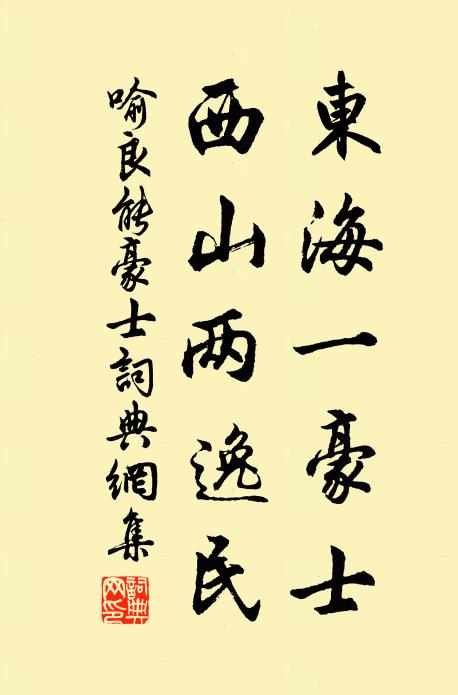 東海一豪士
西山两逸民
喻良能豪士詞典網集
詞典
网印